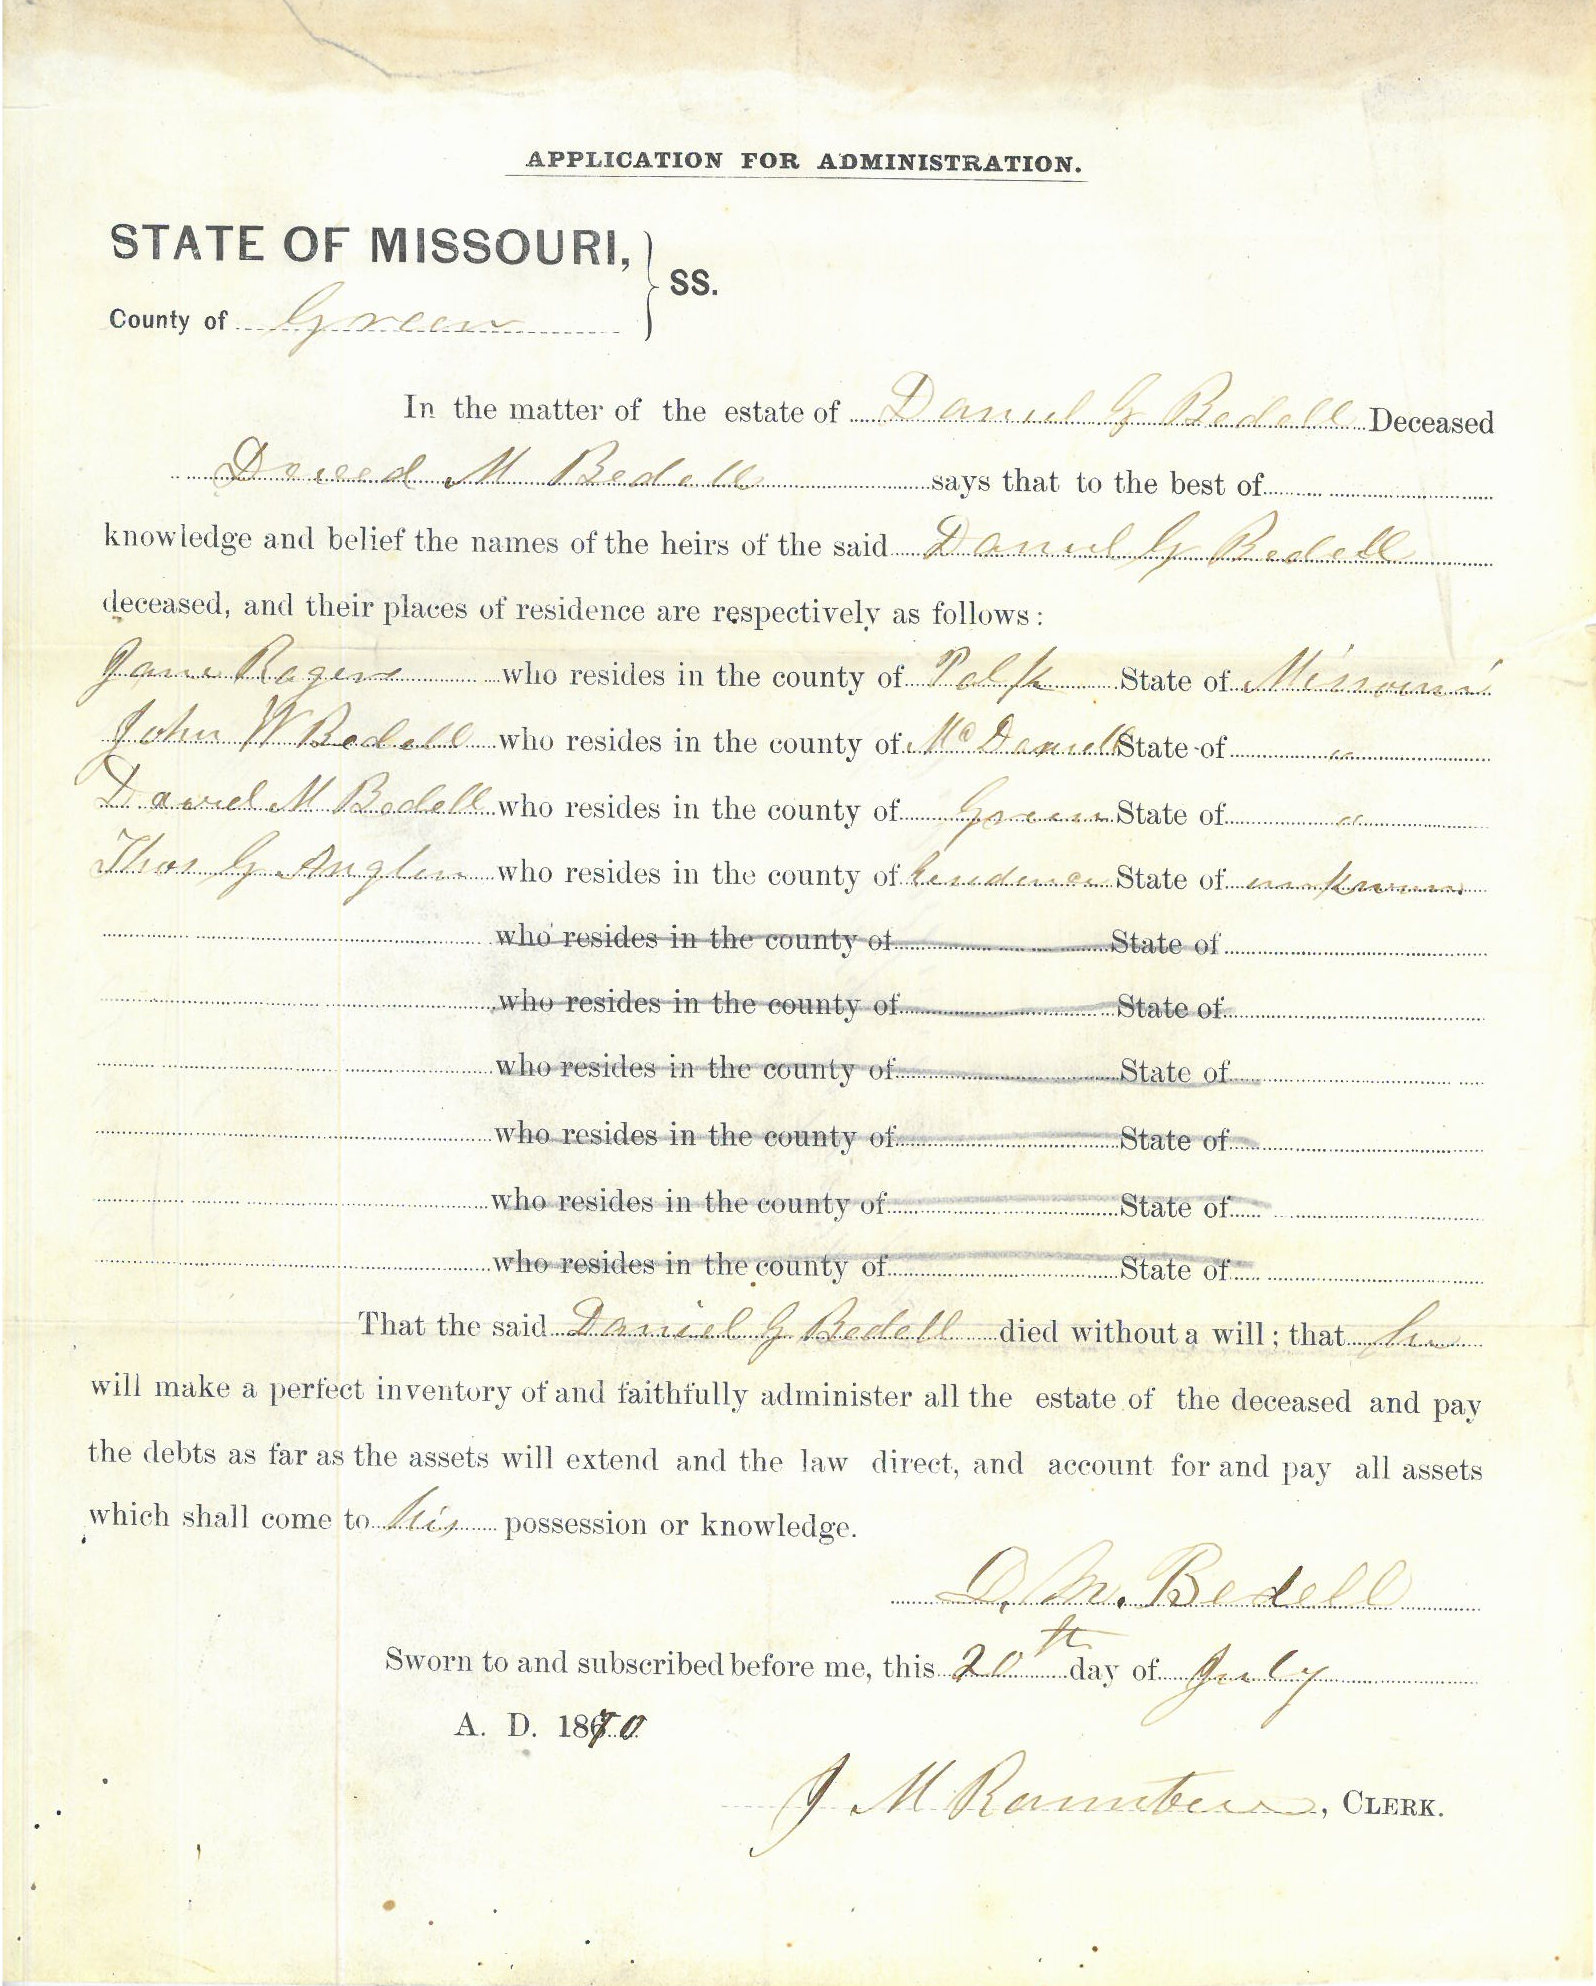 APPLICATION FOR ADMINISTRATION.
STATE OF MISSOURI,
SS.
County of Green
In the matter of the estate of Daniel G Bedell Deceased
David M Bedell says that to the best of
knowledge and belief the names of the heirs of the said Daniel G Bedell
deceased, and their places of residence are respectively as follows:
Jane Rogers who resides in the county of Polk State of Missouri
John W Bedell who resides in the county of McDaniell State of "
David M Bedell who resides in the county of Green State of "
Thos G Anglen who resides in the county of Residence State of unknown
who resides in the county of State of
who resides in the county of State of
who resides in the county of State of
who resides in the county of State of
who resides in the county of State of
who resides in the county of State of
That the said Daniel G Bedell died without a will; that he
will make a perfect inventory of and faithfully administer all the estate of the deceased and pay
the debts as far as the assets will extend and the law direct, and account for and pay all assets
which shall come to his possession or knowledge.
D. M. Bedell
Sworn to and subscribed before me, this 20th day of July
A. D. 1870
J M Rountree, CLERK.